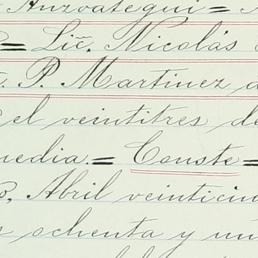 Anzoategui = 
= Lic. Nicolás
P. Martinez
el veintitres de
media. = Conste =
Abril veinticin
ochenta y un